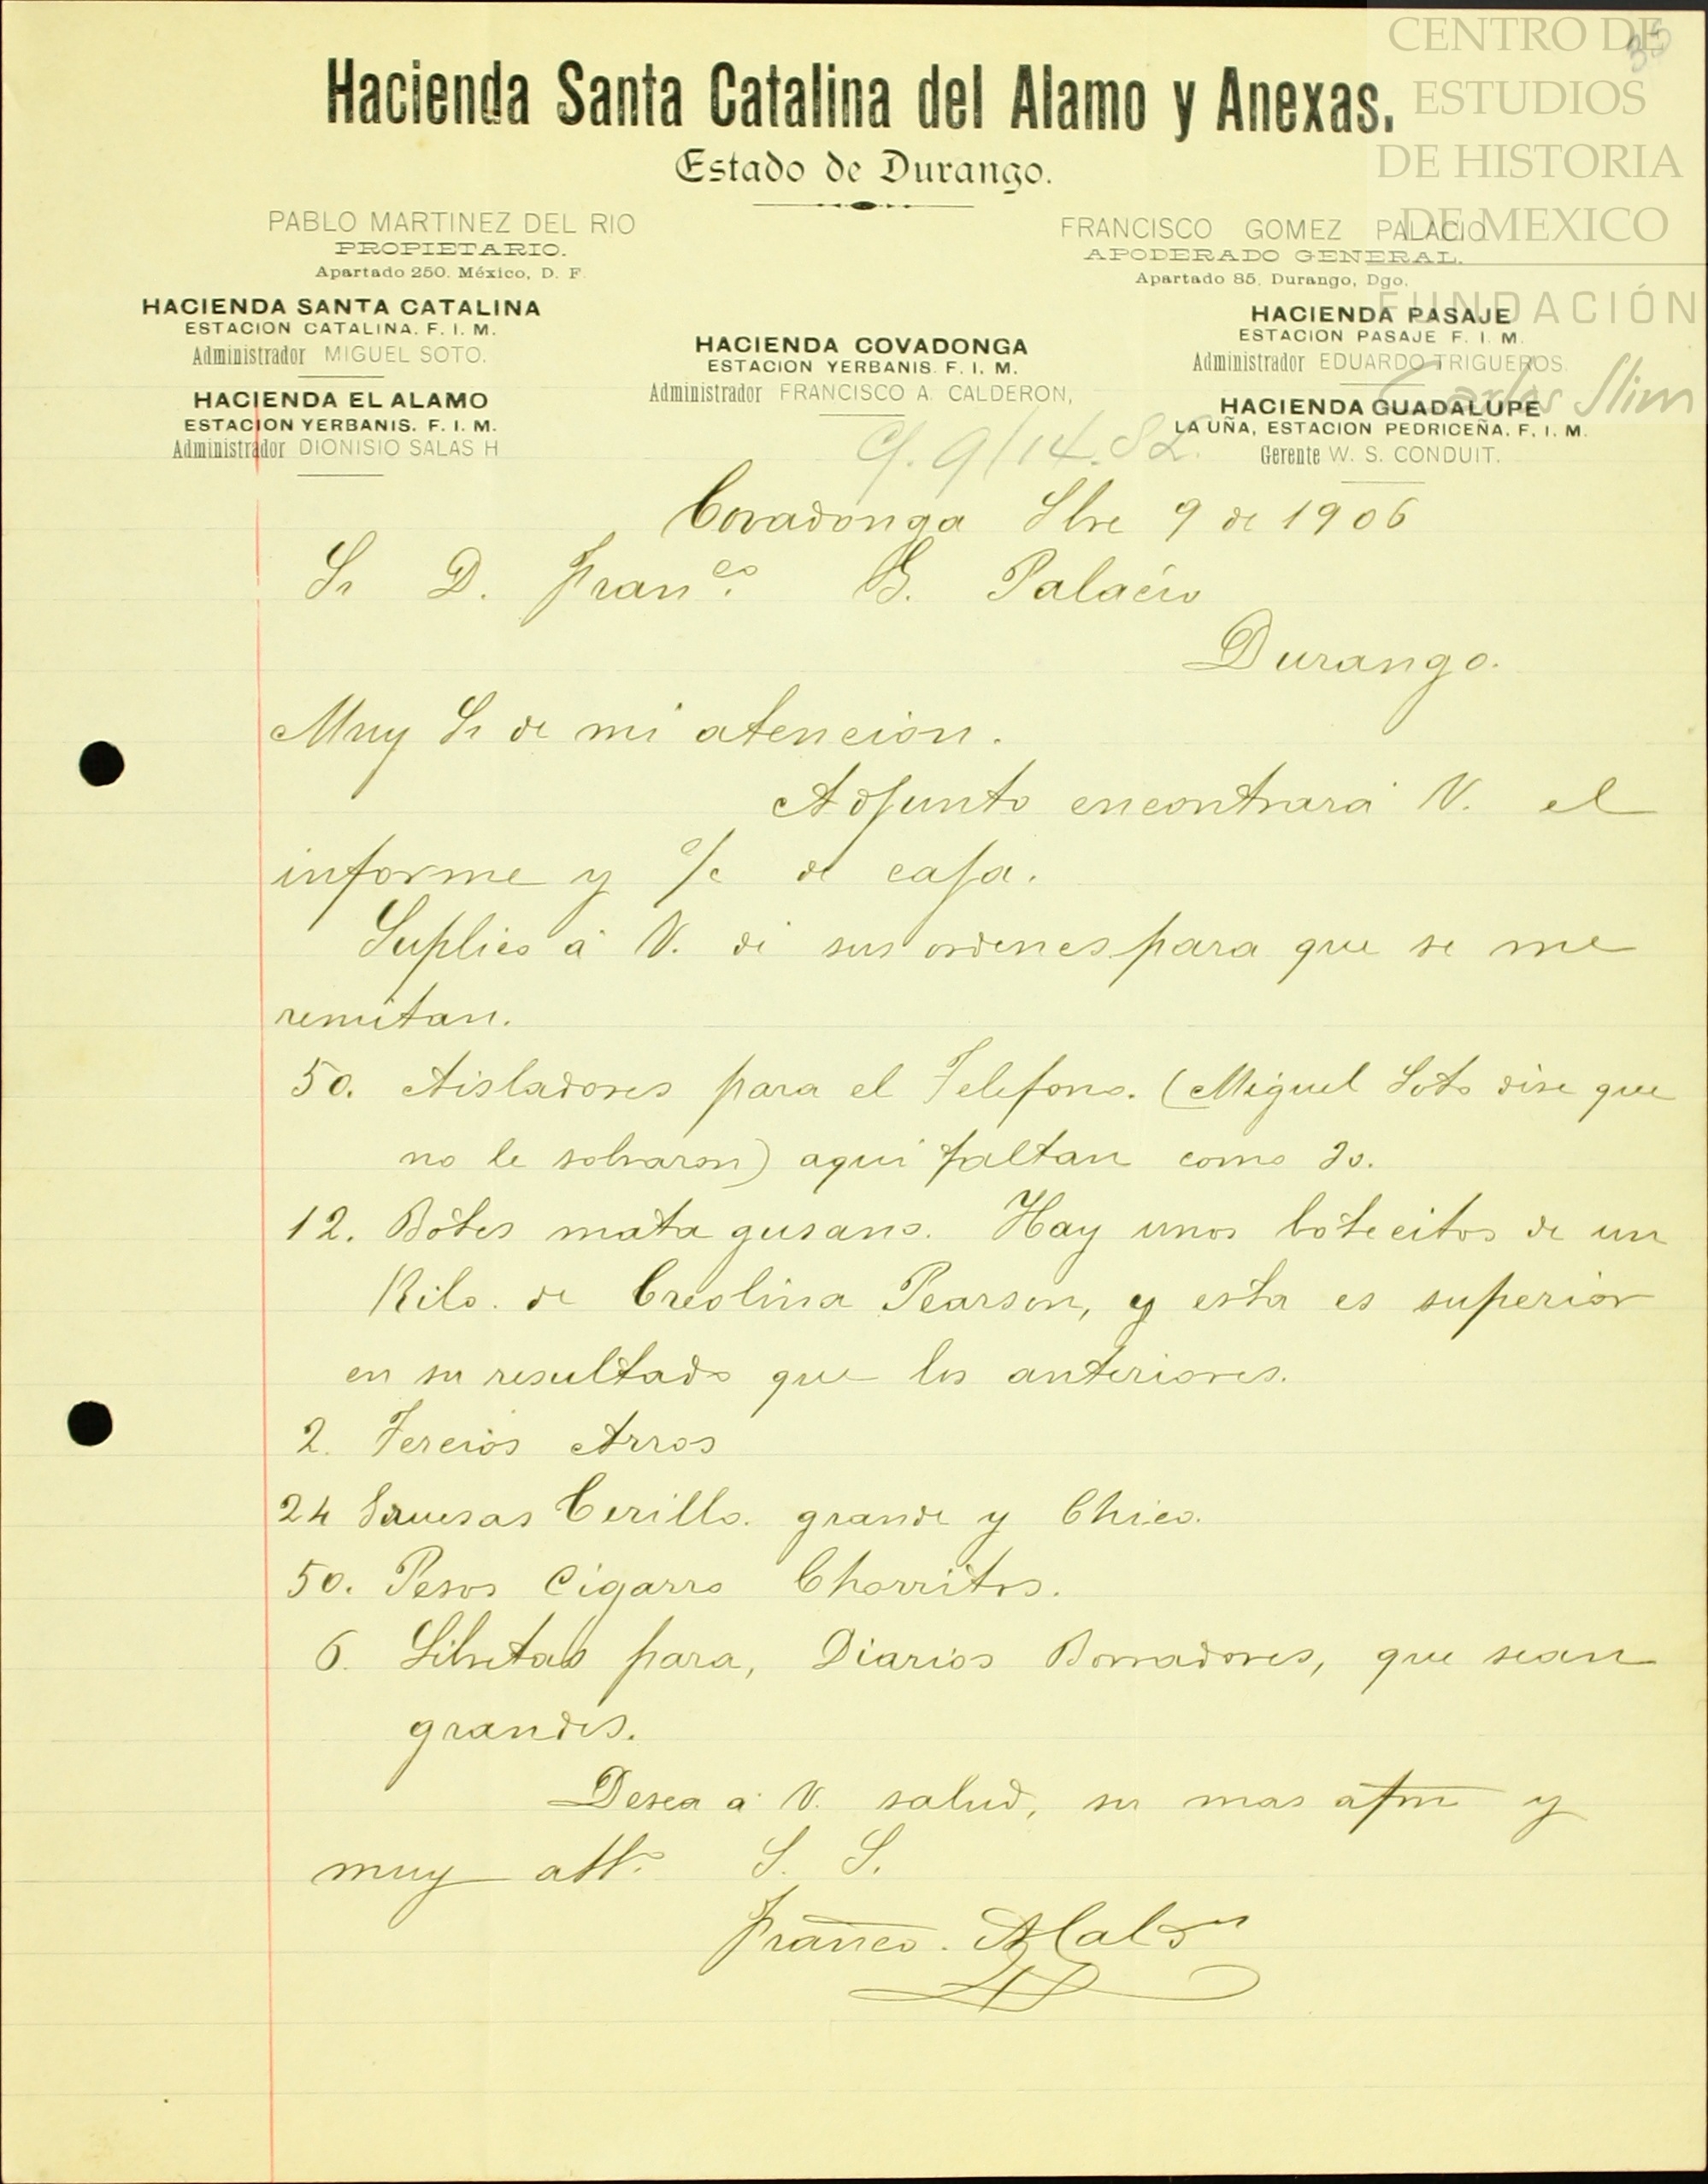 CENTRO DE
ESTUDIOS
DE HISTORIA
DE MEXICO
FUNDACIÓN
Carlos Slim
35
Hacienda Santa Catalina del Alamo y Anexas.
Estado de Durango.
PABLO MARTINEZ DEL RIO
PROPIETARIO.
Apartado 250. México, D. F.
FRANCISCO GOMEZ PALACIO
APODERADO GENERAL.
Apartado 85, Durango, Dgo.
HACIENDA SANTA CATALINA
ESTACION CATALINA. F. I. M.
Administrador MIGUEL SOTO.
HACIENDA EL ALAMO
ESTACION YERBANIS. F. I. M.
Administrador DIONISIO SALAS H
HACIENDA COVADONGA
ESTACION YERBANIS. F. I. M.
Administrador FRANCISCO A. CALDERON,
HACIENDA PASAJE
ESTACION PASAJE F. I. M.
Administrador EDUARDO TRIGUEROS.
HACIENDA GUADALUPE
LA UÑA, ESTACION PEDRICEÑA. F. I. M.
Gerente W. S. CONDUIT.
Covadonga Sbre 9 de 1906
Sr D. Franco. G. Palacio
Durango.
Muy Sr de mi atencion.
Adjunto encontrará V. el
informe y c/c de caja.
Suplico á V. dé sus ordenes para que se me
remitan.
50. Aisladores para el Telefono. (Miguel Soto dise que
no le sobraron) aquí faltan como 20.
12. Botes mata gusano. Hay unos botecitos de un
Kilo. de Creolina Pearson, y esta es superior
en su resultado que los anteriores.
2. Tercios Arros
24 Gruesas Cerillo. grande y Chico.
50. Pesos Cigarro Chorritos.
6. Libretas para, Diarios Borradores, que sean
grandes.
Desea á V. salud, su mas afmo y
muy atto. S. S.
Franco. A Calon